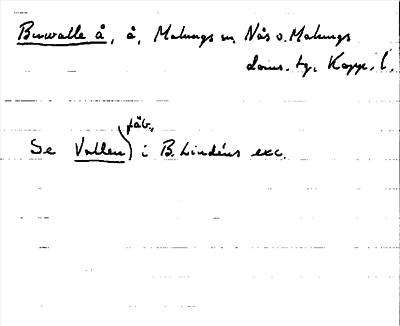 Buvalle å, å, Malungs m Nås o. Malungs
doms. tg. Kopp. l.
fäb.
Se Vallen) i B. Lindéns exc.